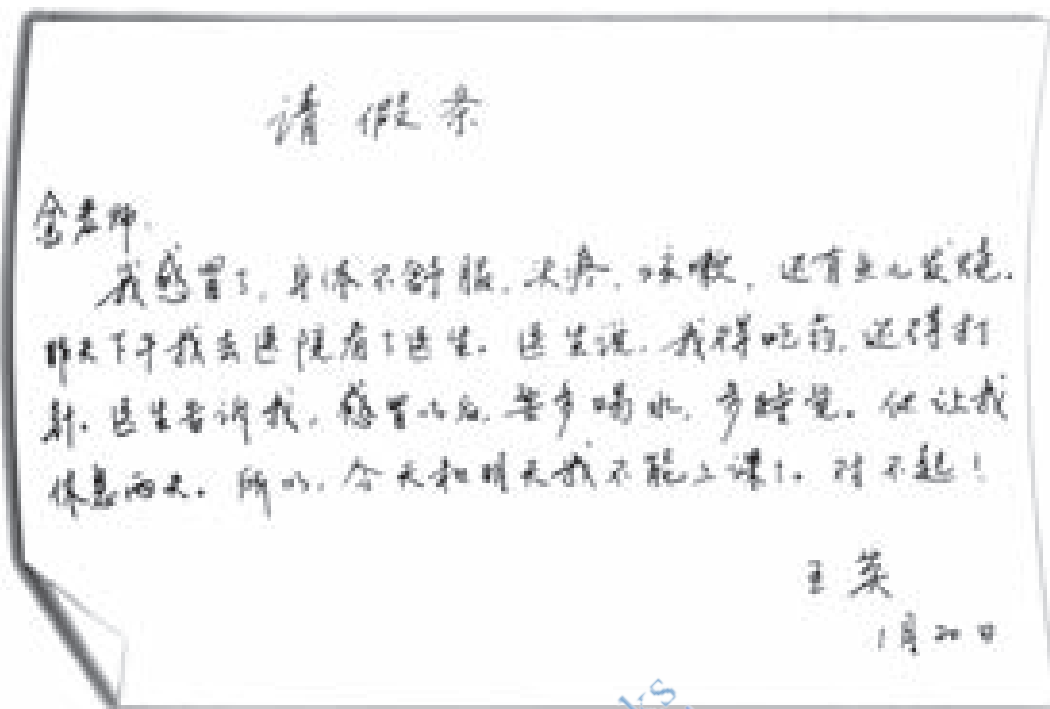 请假条
金老师:
我感冒了,身体不舒服,头疼,咳嗽,还有点儿发烧。
昨天下午我去医院看了医生。医生说,我得吃药,还得打
针。医生告诉我,感冒以后,要多喝水,多睡觉。他让我
休息两天。所以,今天和明天我不能上课了。对不起!
王英
1月20日
ks